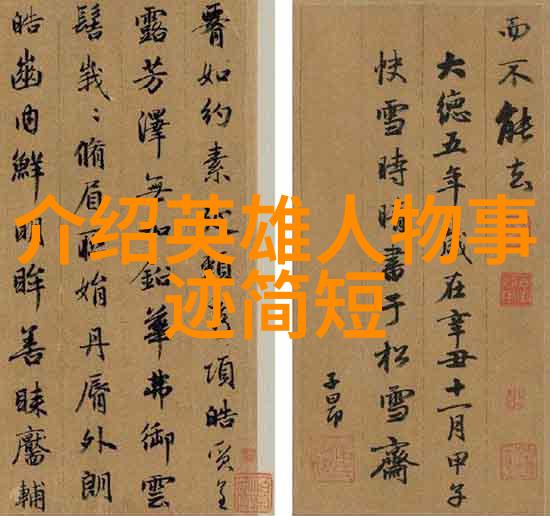 介绍英雄人物事
迹简短
而不能去
大德五年歲在辛丑十一月甲子
快雪時晴書于松雪齋
子昂
如約素頸項皓質呈
露芳澤無加鉛華弗御雲
髻峩〻脩眉聯娟丹脣外朗
皓齒内鮮明眸善睞靨輔